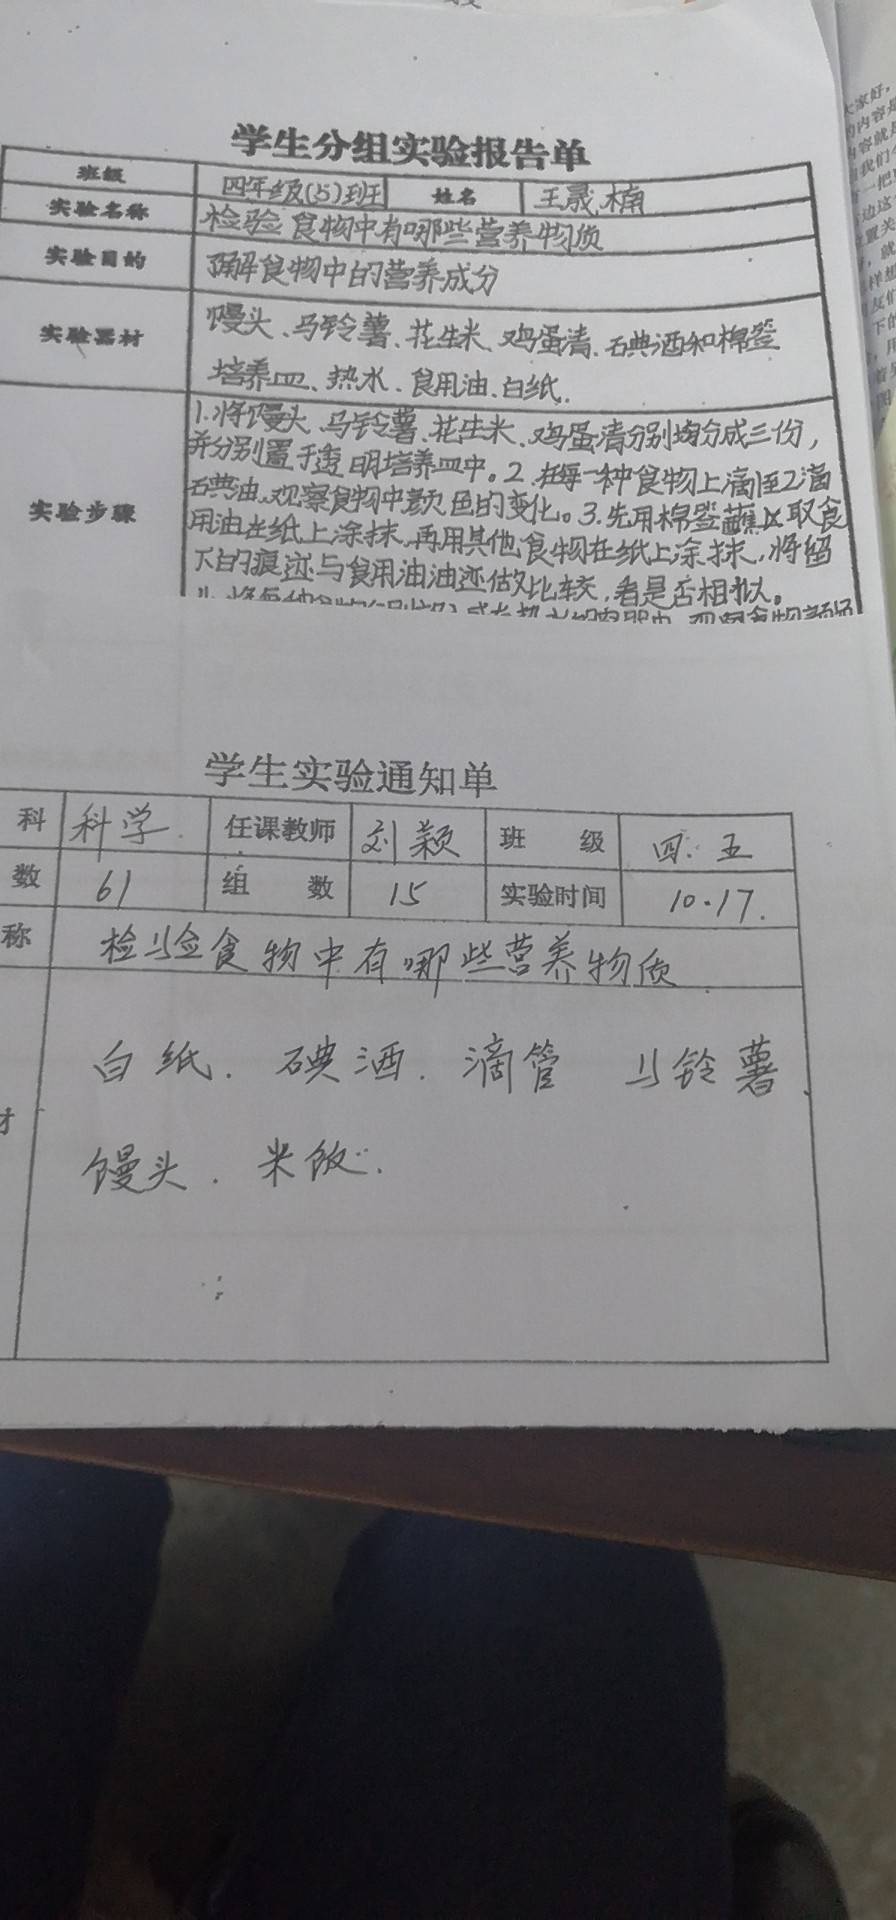 学生分组实验报告单
班级 四年级(5)班 姓名 王晟楠
实验名称 检验食物中有哪些营养物质
实验目的 了解食物中的营养成分
实验器材 馒头、马铃薯、花生米、鸡蛋清、碘酒和棉签
培养皿、热水、食用油、白纸.
实验步骤
1.将馒头、马铃薯、花生米、鸡蛋清分别均分成三份,
并分别置于透明培养皿中。2.在每一种食物上滴1至2滴
碘油,观察食物中颜色的变化。3.先用棉签蘸取食
用油在纸上涂抹,再用其他食物在纸上涂抹,将留
下的痕迹与食用油油迹做比较,看是否相似。
学生实验通知单
科 科学. 任课教师 刘颖 班 级 四.五
数 61 组 数 15 实验时间 10.17.
称 检验食物中有哪些营养物质
白纸. 碘酒. 滴管 马铃薯
馒头. 米饭.